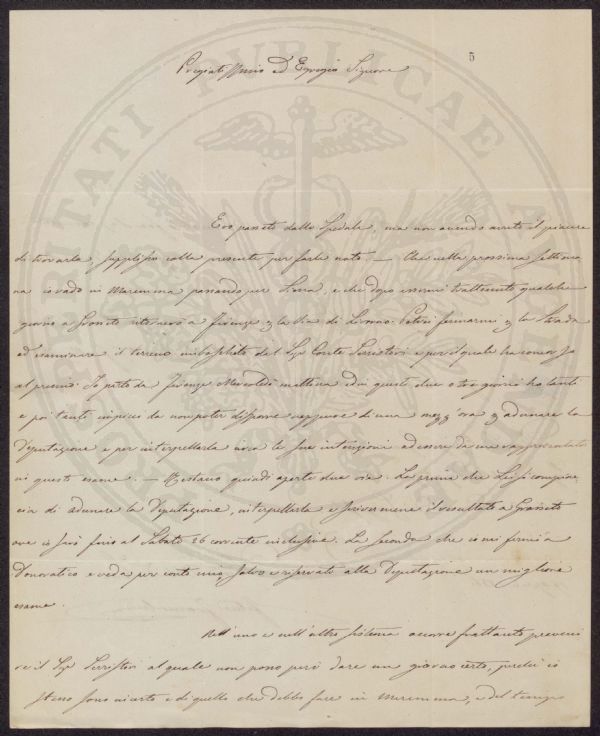 5
Pregiatissimo ed Egregio Signore
Ero passato dallo Spedale, ma non avendo avuto il piacere
di trovarla, supplisco colla presente per farle noto. — Che nella prossima settima
na io vado in Maremma passando per Siena, e che dopo essermi trattenuto qualche
giorno a Grosseto ritornerò a Firenze p la Via di Livorno. Potrei fermarmi p la Strada
ad esaminare il terreno del Sigr Conte Serristori e per il quale ha concorso
al premio. Io parto da Firenze Mercoledì mattina ed in questi due o tre giorni ho tanti
e poi tanti impicci da non poter disporre neppure di una mezz'ora p adunare la
Deputazione e per interpellarla circa le sue intenzioni ad essere da me rappresentata
in questo esame. — Restano quindi aperte due vie. La prima che Lei si compiac
cia di adunare la Deputazione, interpellarla e scrivermene il resultato a Grosseto
ove io sarò fino al Sabato 26 corrente inclusive. La seconda che io mi fermi a
Donoratico e veda per conto mio, salvo e riservato alla Deputazione un migliore
esame.
Nell'uno e nell'altro sistema occorre frattanto preveni
re il Sigr Serristori al quale non posso però dare un giorno certo, perchè io
stesso sono incerto e di quello che debbo fare in Maremma, e del tempo
PUBLICAE